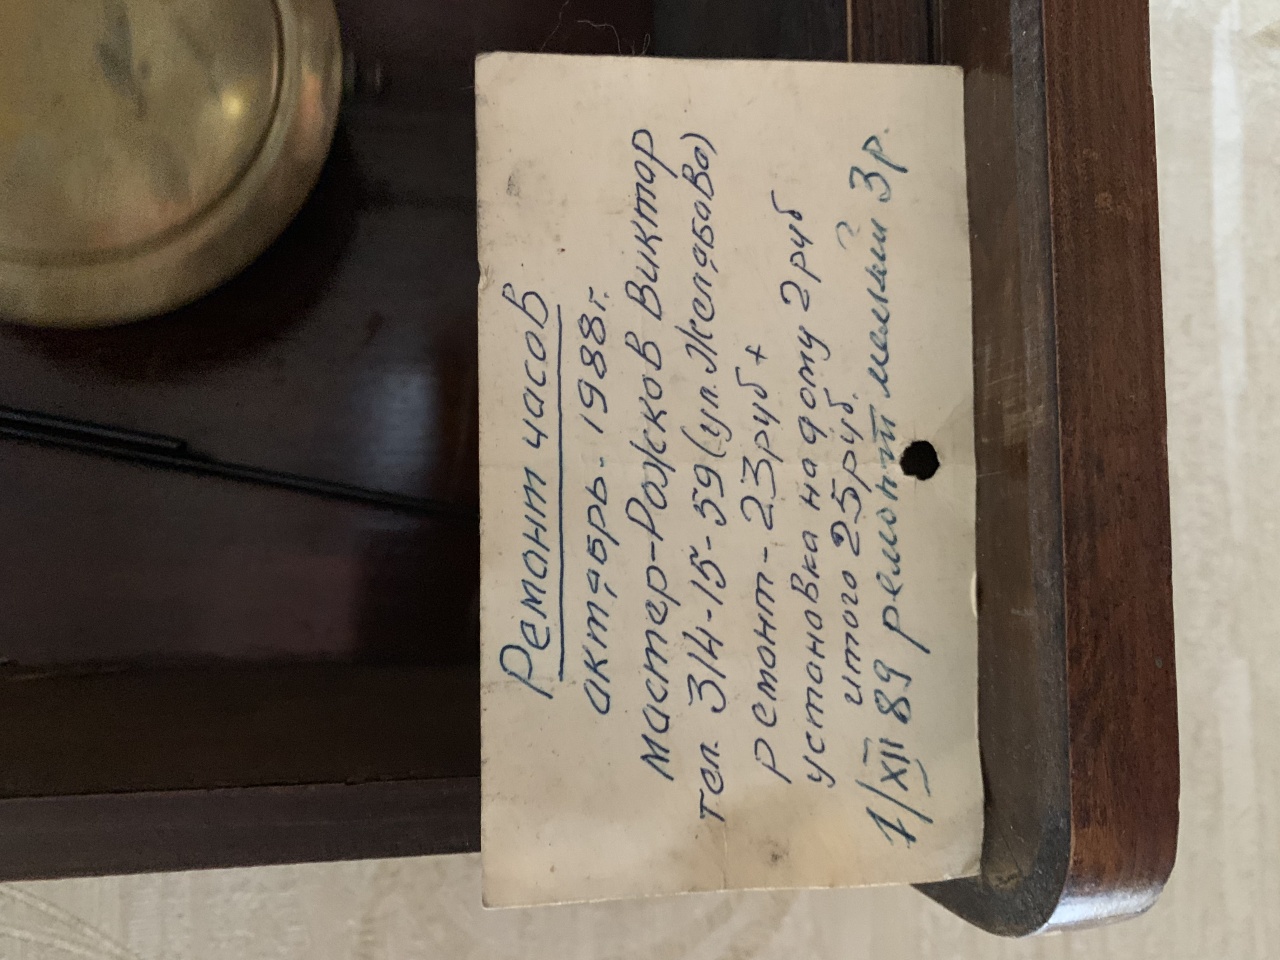 Ремонт часов
октябрь - 1988г.
мастер-Рожков Виктор
тел. 314-15-59 (ул. Желябова)
ремонт - 23руб +
установка на дому 2руб
итого 25руб. ?
1/XII 89 ремонт мелкий 3 р.